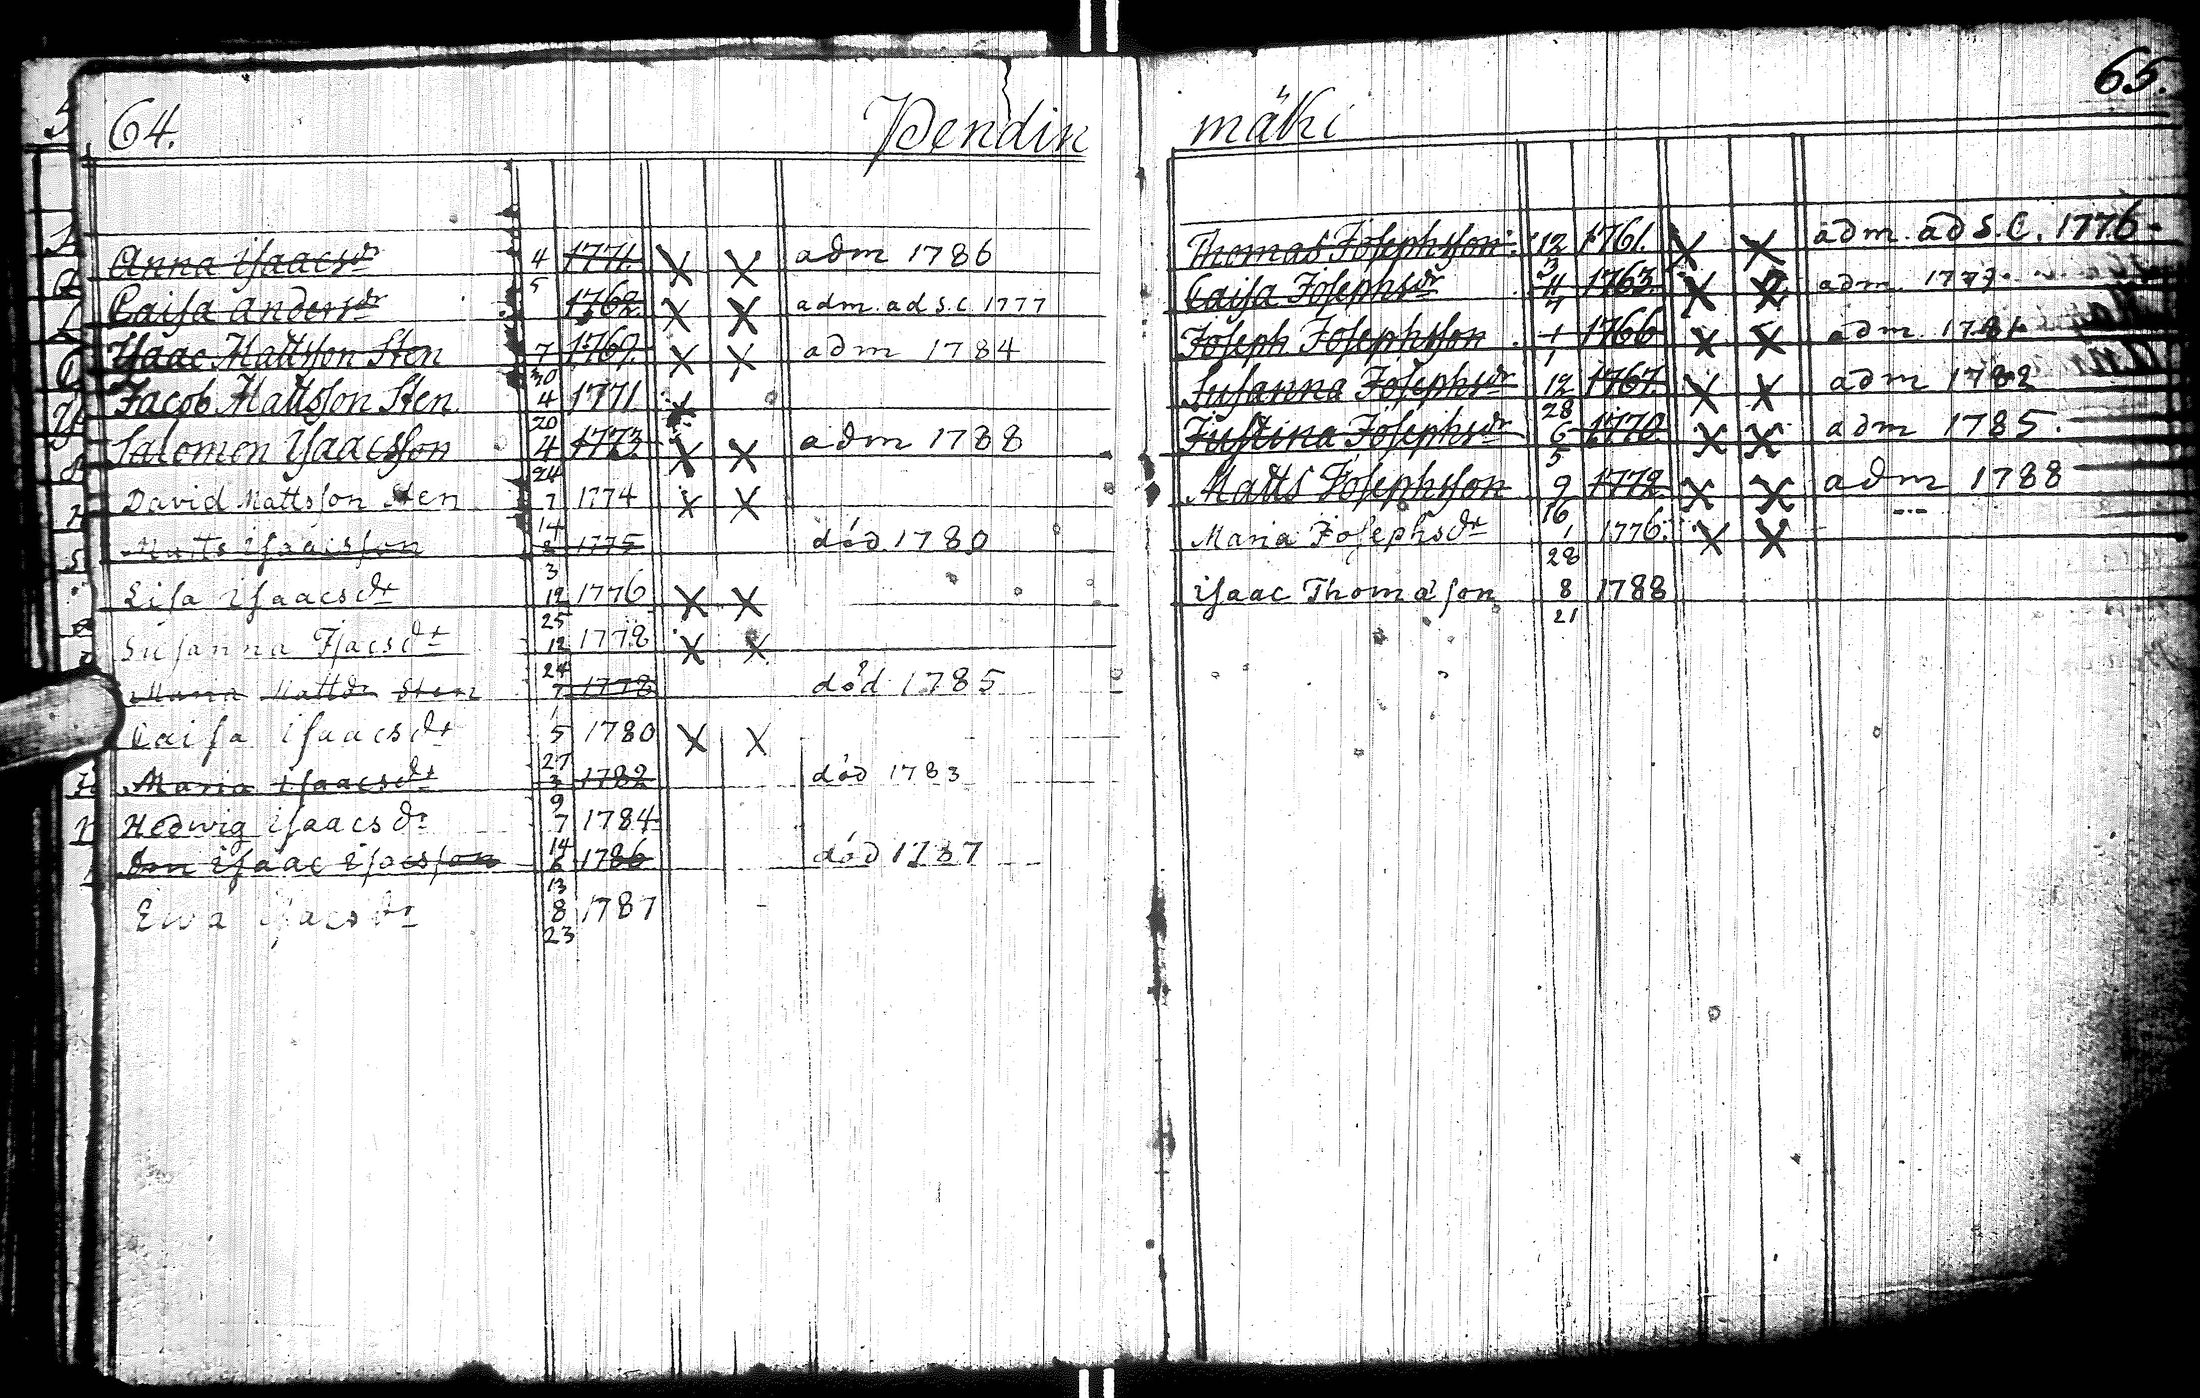 64. Pendin
Anna Isaacsdr 4 5 1771. X X adm 1786
Caisa Andersdr 1762. X X adm. ad S.C. 1777
Isaac Mattsson Sten 7 30 1769. X X adm 1784
Jacob Mattsson Sten 4 20 1771
Salomon Isaacsson 4 24 1773. X X adm 1788
David Mattsson Sten 7 14 1774 X X
Matts Isaacsson 3 1775 död 1780
Lisa Isaacsdr 12 25 1776 X X
Susanna Isacsdr 12 24 1778 X X
Maria Mattsdr Sten 7 1 1778 död 1785
Caisa Isaacsdr 5 27 1780 X X
Maria Isaacsdr 3 9 1782 död 1783
Hedwig Isaacsdr 7 14 1784
Isaac Isacsson 6 13 1786 död 1787
Ewa Isacsdr 8 23 1787
mäki 65.
Thomas Josephsson. 12 3 1761. X X adm. ad S.C. 1776.
Caisa Josephsdr 11 7 1763. X X adm 1777
Joseph Josephsson 1 1 1766 X X adm. 1781
Susanna Josephsdr 12 28 1767. X X adm 1782
Justina Josephsdr 6 5 1770. X X adm 1785.
Matts Josephsson 9 16 1772. X X adm 1788
Maria Josephsdr 1 28 1776. X X
Isaac Thomasson 8 21 1788